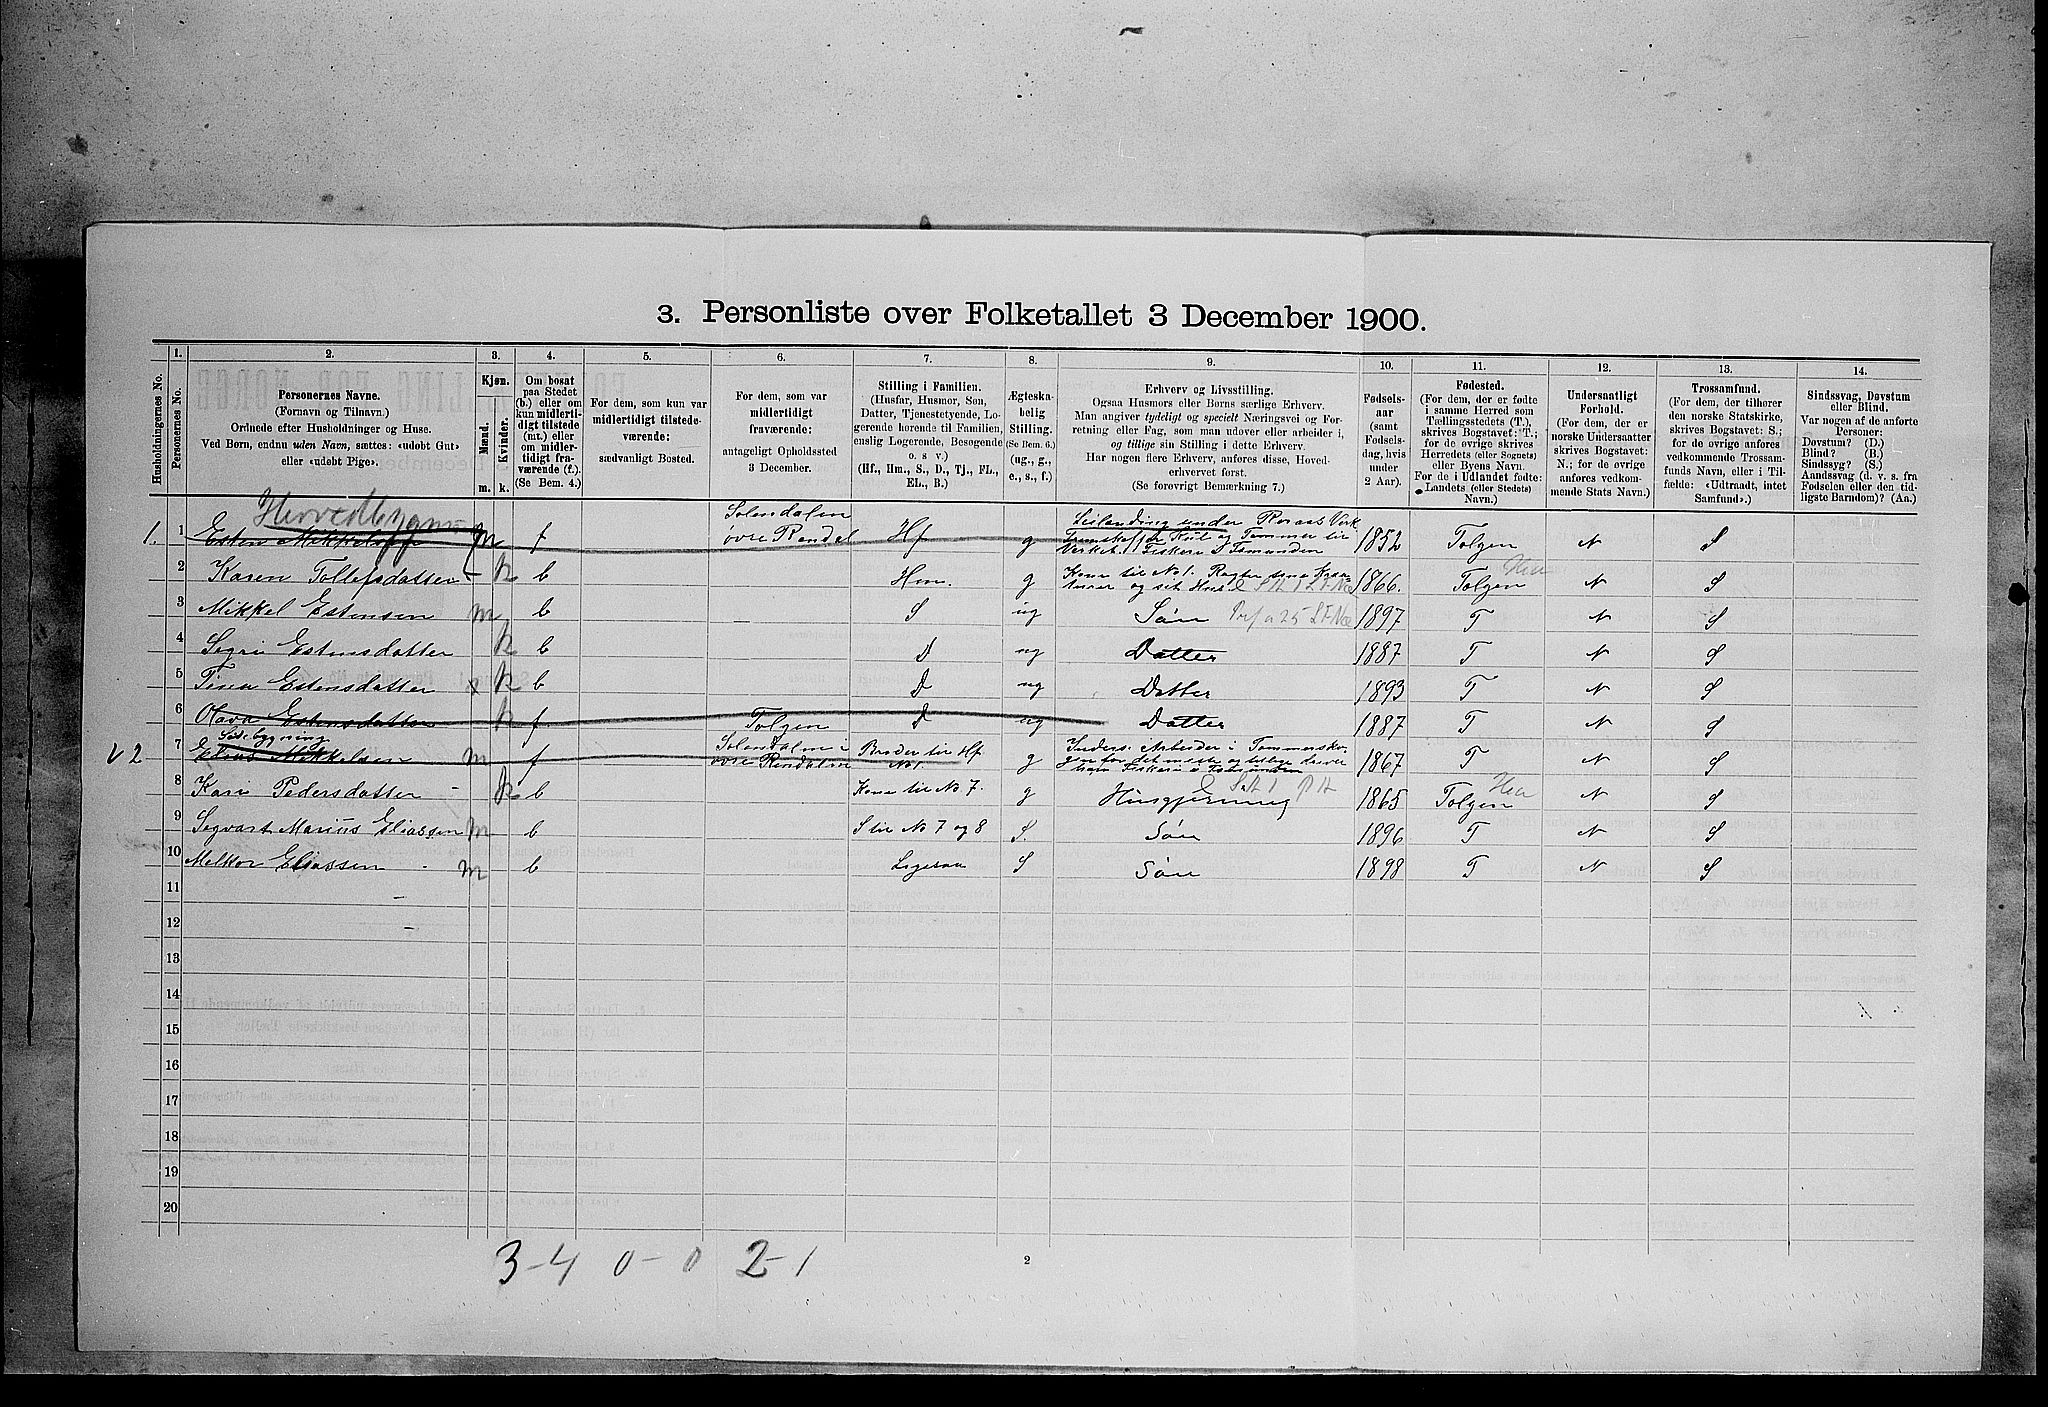 3. Personliste over Folketallet 3 December 1900.
Husholdningernes No.
1.
Personernes No.
2.
Personernes Navne.
(Fornavn og Tilnavn.)
Ordnede efter Husholdninger og Huse.
Ved Børn, endnu uden Navn, sættes: «udøbt Gut»
eller «udøbt Pige».
3.
Kjøn.
Mænd.
Kvinder.
m. k.
4.
Om bosat
paa Stedet
(b.) eller om
kun midlerti-
digt tilstede
(mt.) eller
om midler-
tidigt fra-
værende (f.).
(Se Bem. 4.)
5.
For dem, som kun var
midlertidigt tilstede-
værende:
sædvanligt Bosted.
6.
For dem, som var
midlertidigt
fraværende:
antageligt Opholdssted
3 December.
7.
Stilling i Familien.
(Husfar, Husmor, Søn,
Datter, Tjenestetyende, Lo-
gerende hørende til Familien,
enslig Logerende, Besøgende
o. s v.)
(Hf., Hm., S., D., Tj., FL.,
EL., B.)
8.
Ægteska-
belig
Stilling.
(Se Bem. 6.)
(ug., g.,
e., s., f.)
9.
Erhverv og Livsstilling.
Ogsaa Husmors eller Børns særlige Erhverv.
Man angiver tydeligt og specielt Næringsvei og For-
retning eller Fag, som man udøver eller arbeider i,
og tillige sin Stilling i dette Erhverv.
Har nogen flere Erhverv, anføres disse, Hoved-
erhvervet først.
(Se forøvrigt Bemærkning 7.)
10.
Fødsels-
aar
(samt
Fødsels-
dag, hvis
under
2 Aar).
11.
Fødested.
(For dem, der er fødte
i samme Herred som
Tællingsstedets (T.),
skrives Bogstavet: T.;
for de øvrige skrives
Herredets (eller Sognets)
eller Byens Navn.
For de i Udlandet fødte:
Landets (eller Stedets)
Navn.)
12.
Undersaatligt
Forhold.
(For dem, der er
norske Undersaatter
skrives Bogstavet:
N.; for de øvrige
anføres vedkom-
mende Stats Navn.)
13.
Trossamfund.
(For dem, der tilhører
den norske Statskirke,
skrives Bogstavet: S.;
for de øvrige anføres
vedkommende Trossam-
funds Navn, eller i Til-
fælde: «Udtraadt, intet
Samfund».)
14.
Sindssvag, Døvstum
eller Blind.
Var nogen af de anførte
Personer:
Døvstum? (D.)
Blind? (B.)
Sindssyg? (S.)
Aandssvag (d. v. s. fra
Fødselen eller den tid-
ligste Barndom)? (Aa.)
1. 1 Esten Mikkelsen m f øvre Rendal Hf g 1852 Tolgen N S
2 Karen Tollefsdatter k b Hm. g Kone til No 1. 1866 Tolgen N S
3 Mikkel Estensen m b S ug Søn 1897 T N S
4 Segri Estensdatter k b D ug Datter 1887 T N S
5 Tina Estensdatter x k b D ug Datter 1893 T N S
6 Olava Estensdatter k f Tolgen D ug Datter 1887 T N S
Sidebygning
2 7 Elias Mikkelsen m f Solendalen i øvre Rendalen Broder til Hf No 1. g 1867 T N S
8 Kari Pedersdatter k b Kone til No 7. g Husgjerning 1865 Tolgen N S
9 Segvart Marius Eliassen m b S til No 7 og 8 S Søn 1896 T N S
10 Melkor Eliassen m b Ligesaa S Søn 1898 T N S
11
12
13
14
15
16
17
18
19
20
3-4 0-0 2-1
2